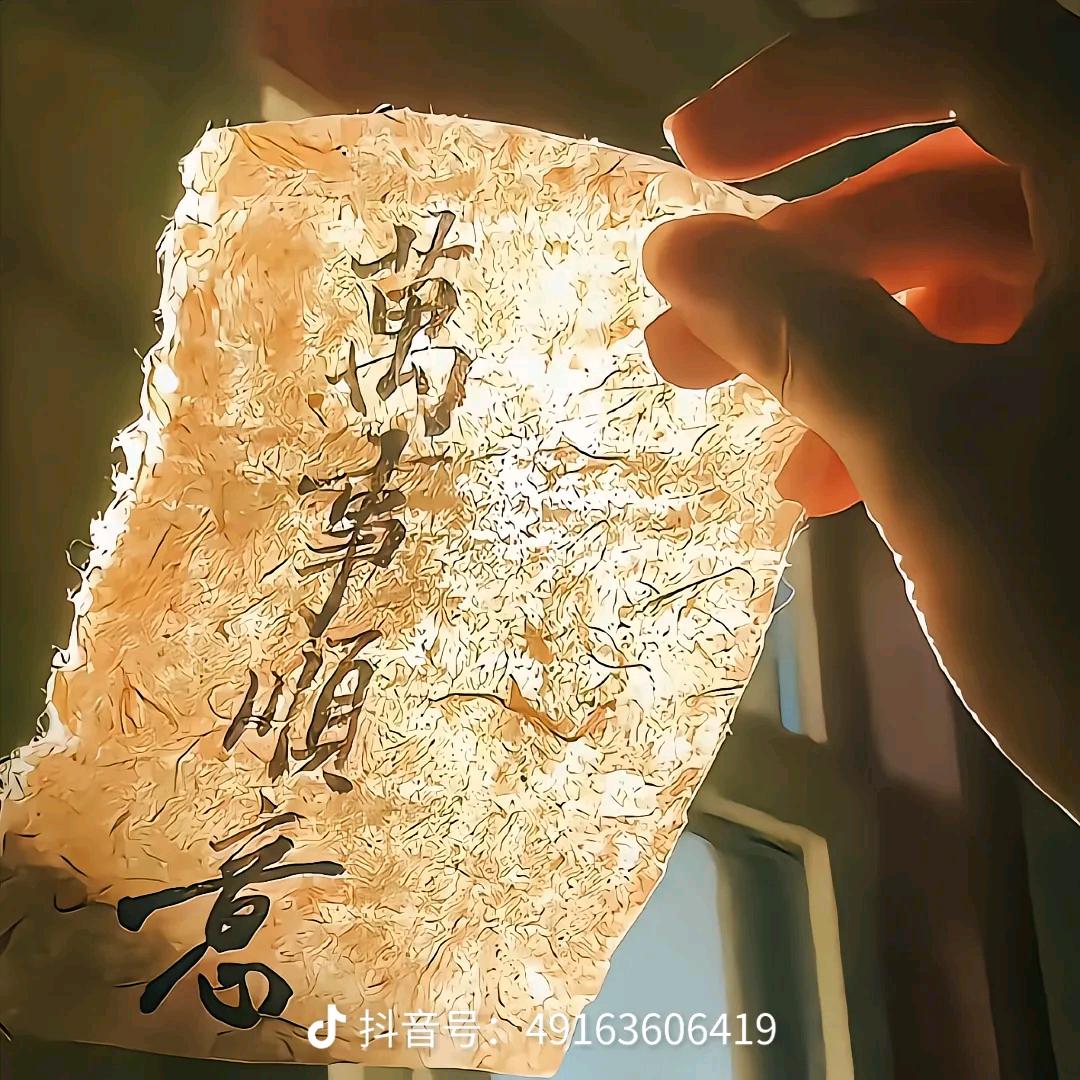 萬事順意
抖音号：49163606419